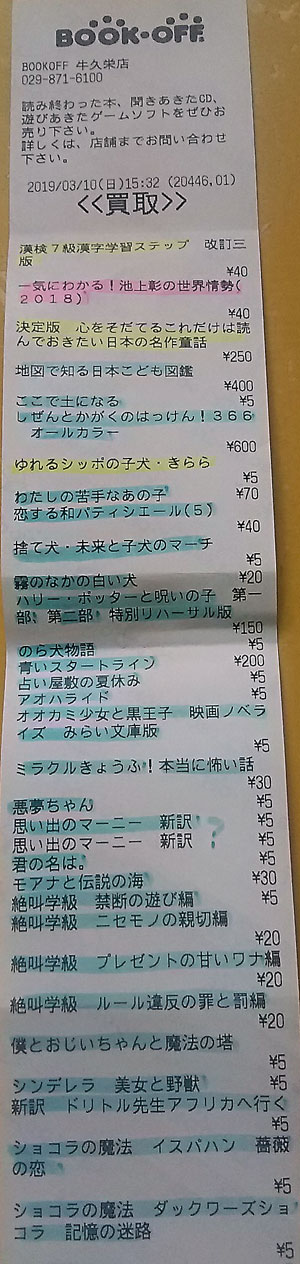 BOOK-OFF
BOOKOFF 牛久栄店
029-871-6100
読み終わった本、聞きあきたCD、
遊びあきたゲームソフトをぜひお
売り下さい。
詳しくは、店舗までお問い合わせ
下さい。
2019/03/10(日)15:32 (20446,01)
<<買取>>
漢検7級漢字学習ステップ 改訂三
版
¥40
一気にわかる!池上彰の世界情勢(
2018)
¥40
決定版 心をそだてるこれだけは読
んでおきたい日本の名作童話
¥250
地図で知る日本こども図鑑
¥400
ここで土になる ¥5
しぜんとかがくのはっけん!366
オールカラー
¥600
ゆれるシッポの子犬・きらら
¥5
わたしの苦手なあの子 ¥70
恋する和パティシエール(5)
¥40
捨て犬・未来と子犬のマーチ
¥5
霧のなかの白い犬 ¥20
ハリー・ポッターと呪いの子 第一
部、第二部 特別リハーサル版
¥150
のら犬物語 ¥5
青いスタートライン ¥200
占い屋敷の夏休み ¥5
アオハライド ¥5
オオカミ少女と黒王子 映画ノベラ
イズ みらい文庫版
¥5
ミラクルきょうふ!本当に怖い話
¥30
悪夢ちゃん ¥5
思い出のマーニー 新訳 ¥5
思い出のマーニー 新訳 ? ¥5
君の名は。 ¥5
モアナと伝説の海 ¥30
絶叫学級 禁断の遊び編 ¥5
絶叫学級 ニセモノの親切編
¥20
絶叫学級 プレゼントの甘いワナ編
¥20
絶叫学級 ルール違反の罪と罰編
¥20
僕とおじいちゃんと魔法の塔
¥5
シンデレラ 美女と野獣 ¥5
新訳 ドリトル先生アフリカへ行く
¥5
ショコラの魔法 イスパハン 薔薇
の恋 ¥5
ショコラの魔法 ダックワーズショ
コラ 記憶の迷路
¥5